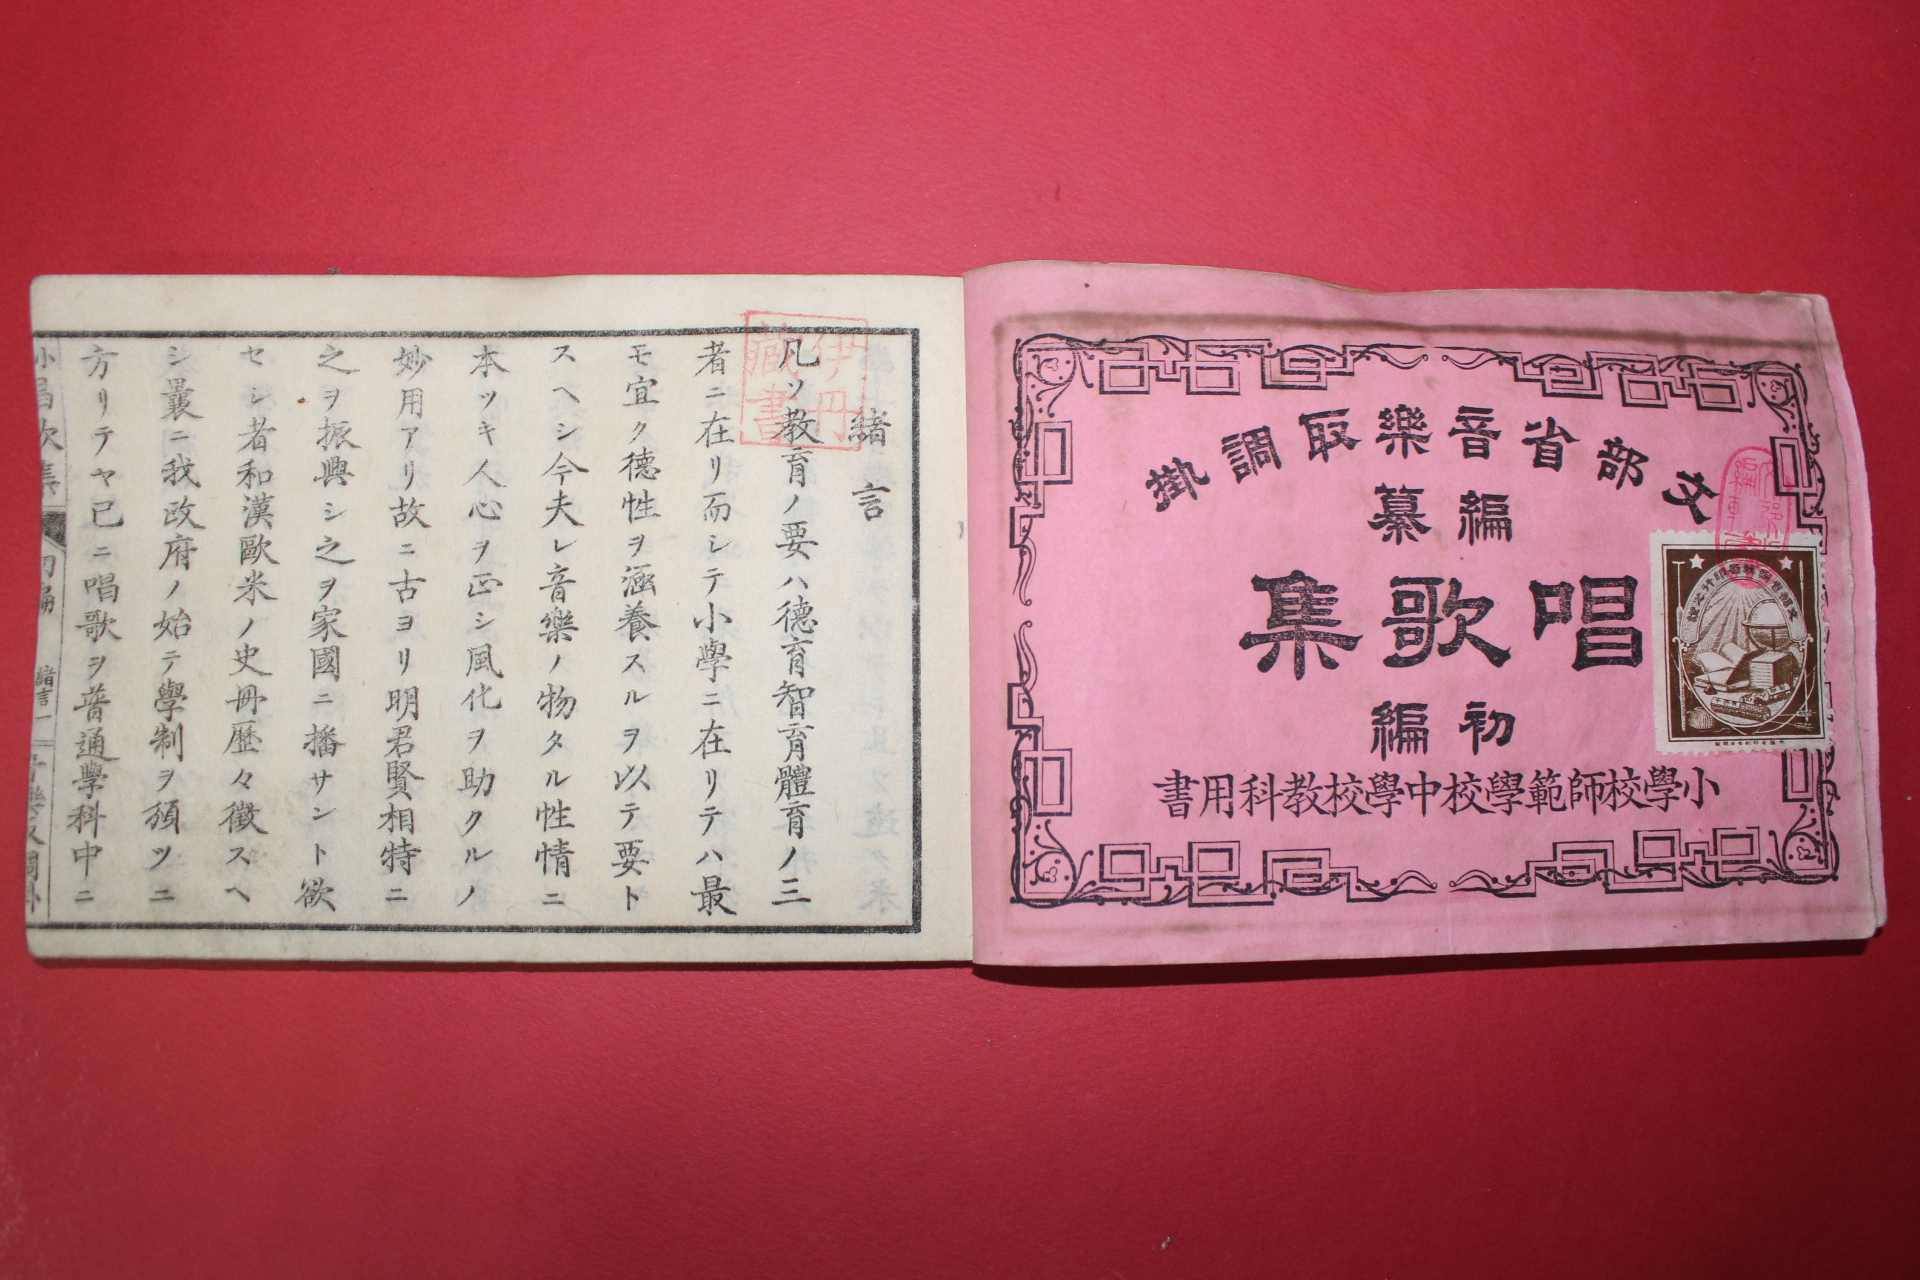 文部省音樂取調掛
編纂
唱歌集
初編
小學校師範學校中學校教科用書
緒言
凡ソ教育ノ要ハ德育智育體育ノ三
者ニ在リ而シテ小學ニ在リテハ最
モ宜ク德性ヲ涵養スルヲ以テ要ト
スヘシ今夫レ音樂ノ物タル性情ニ
本ツキ人心ヲ正シ風化ヲ助クルノ
妙用アリ故ニ古ヨリ明君賢相特ニ
之ヲ振興シ之ヲ家國ニ播サント欲
セシ者和漢歐米ノ史冊歷々徵スヘ
シ曩ニ我政府ノ始テ學制ヲ頒ツニ
方リテヤ已ニ唱歌ヲ普通學科中ニ
緒言一
伊丹
藏書